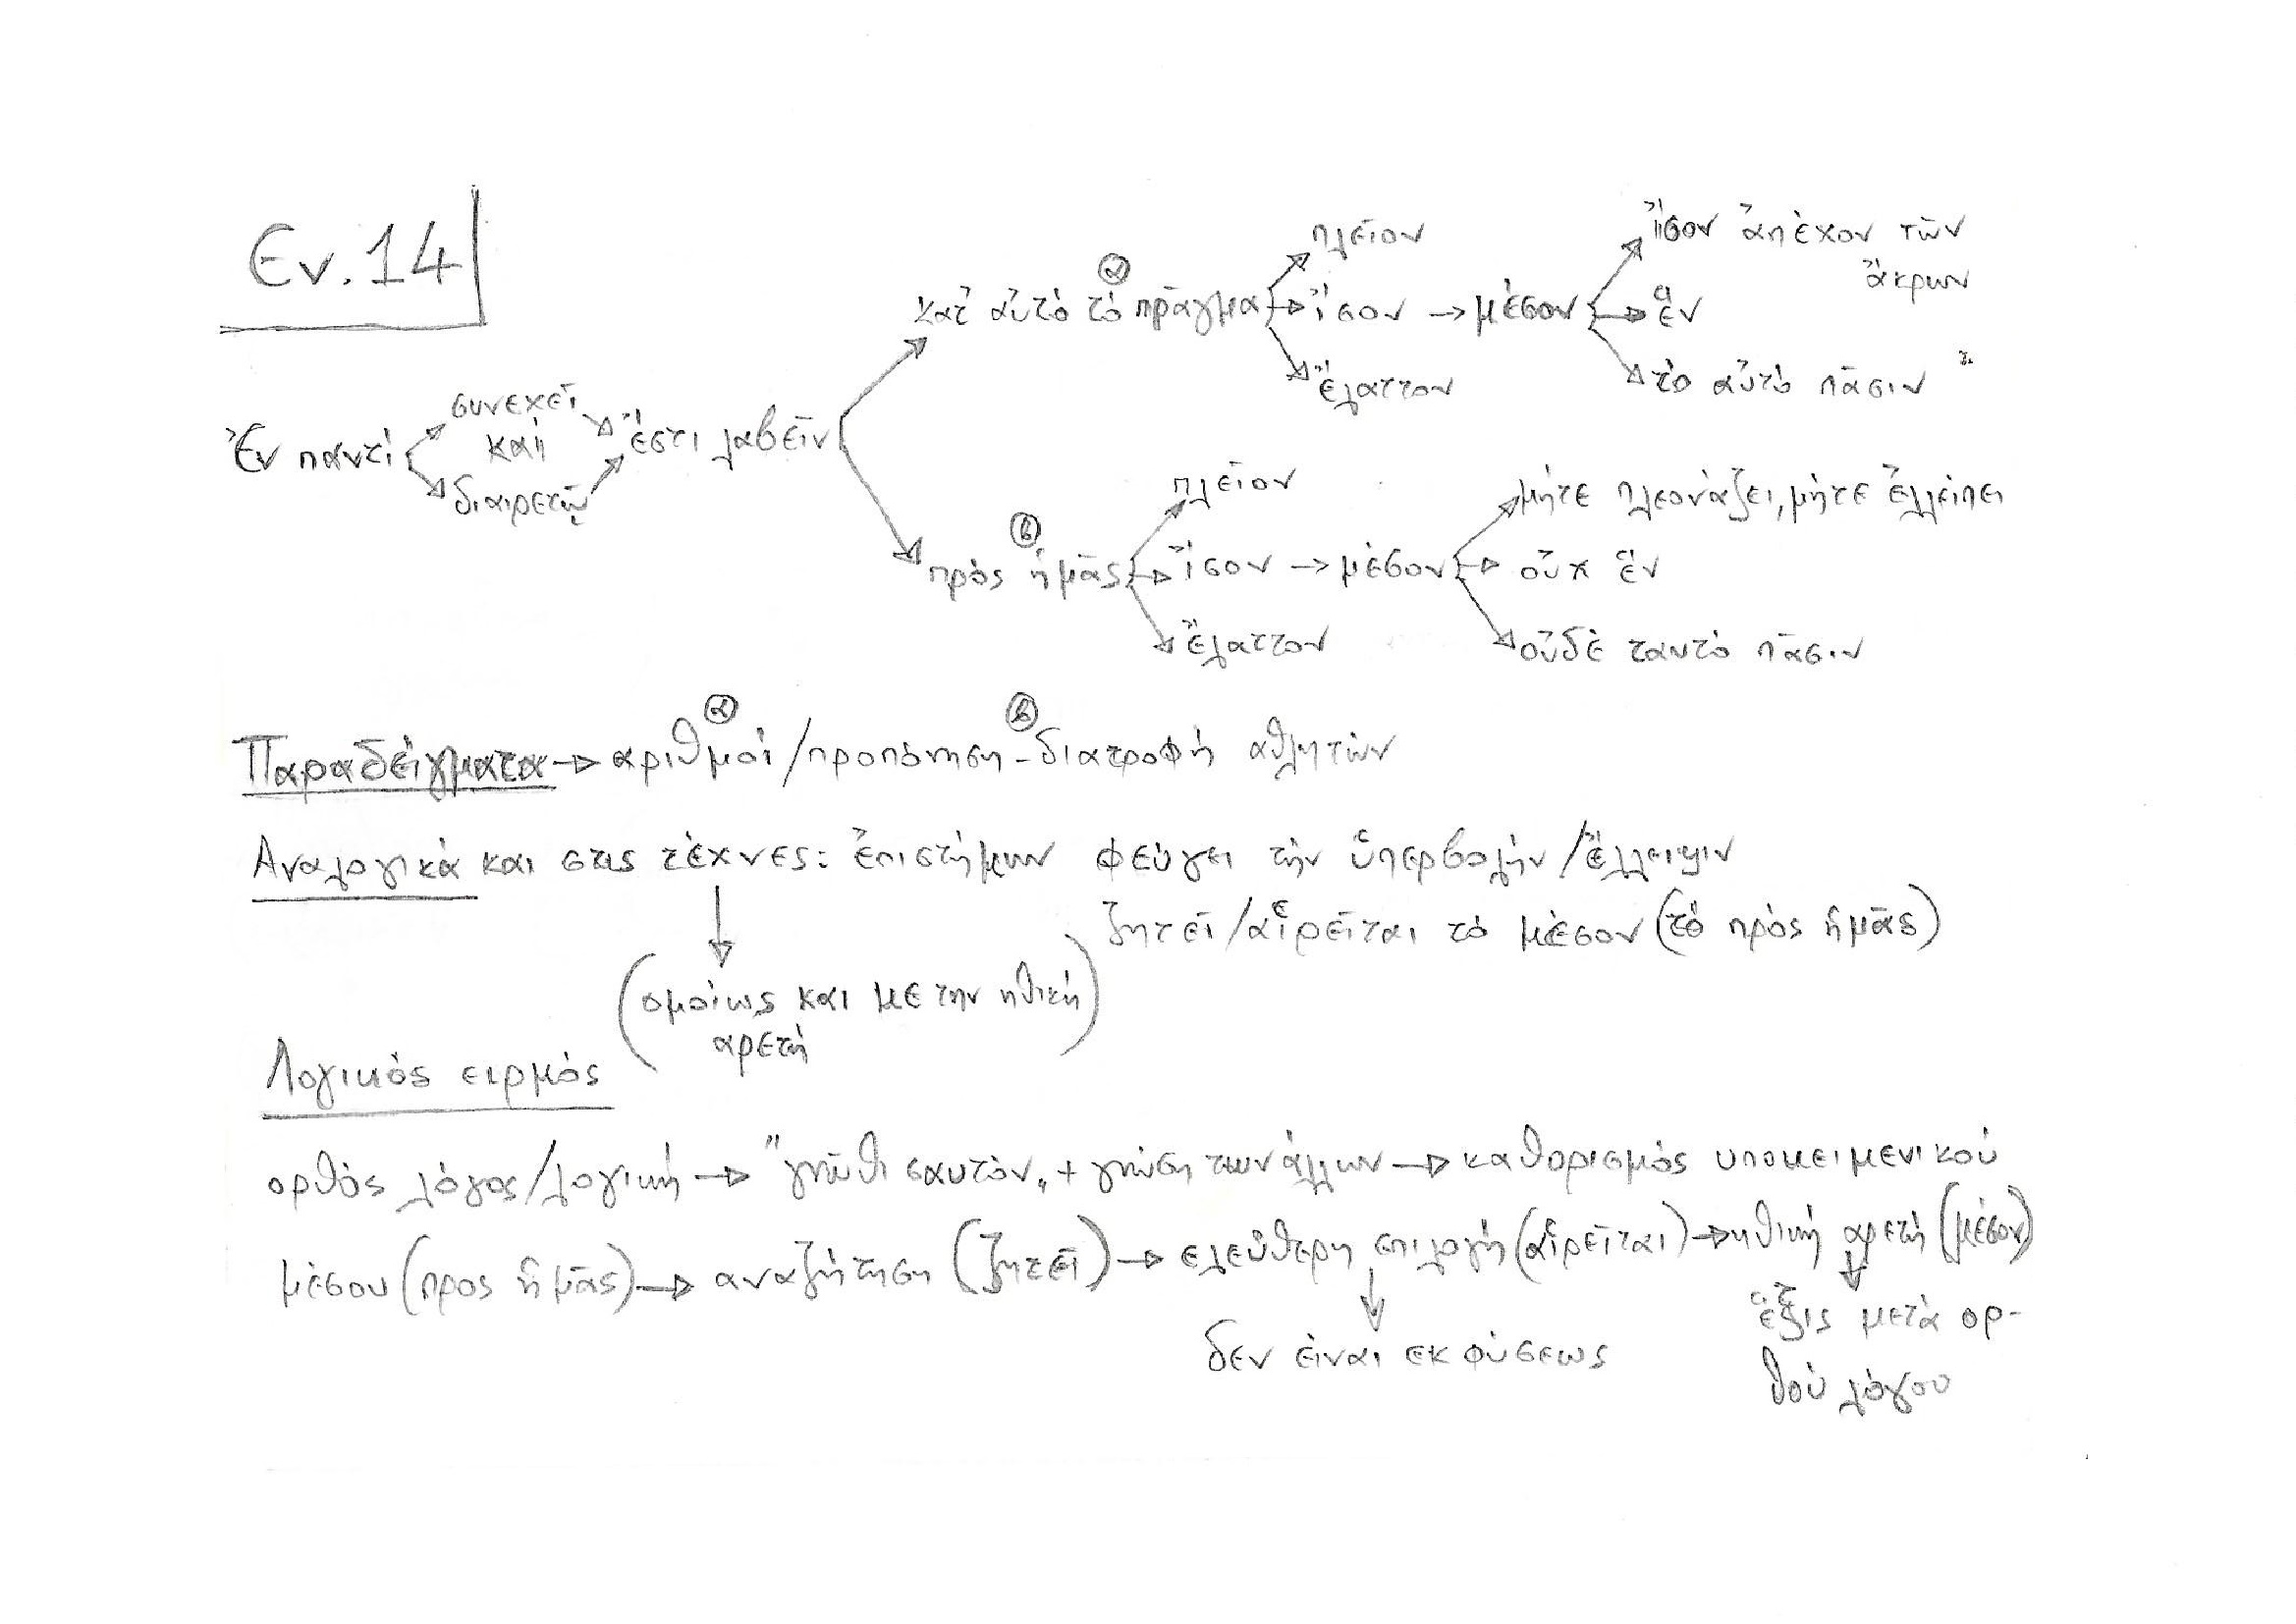 Εν. 14
Ἐν παντί συνεχεῖ καί διαιρετῷ ἔστι λαβεῖν
ⓐ
κατ' αὐτό τό πρᾶγμα
πλεῖον
ἴσον → μέσον
ἔλαττον
ἴσον ἀπέχον τῶν
ἄκρων
ἕν
τό αὐτό πᾶσιν
ⓑ
πρός ἡμᾶς
πλεῖον
ἴσον → μέσον
ἔλαττον
μήτε πλεονάζει, μήτε ἐλλείπει
οὐχ ἕν
οὐδέ ταυτό πᾶσιν
ⓐ ⓑ
Παραδείγματα → αριθμοί / προπόνηση - διατροφή αθλητών
Αναλογικά και στις τέχνες: ἐπιστήμων φεύγει τήν ὑπερβολήν / ἔλλειψιν
ζητεῖ / αἱρεῖται τό μέσον (τό πρός ἡμᾶς)
(ομοίως και με την ηθική
αρετή)
Λογικός ειρμός
ορθός λόγος / λογική → "γνῶθι σαυτόν„ + γνώση των άλλων → καθορισμός υποκειμενικού
μέσου (προς ἡμᾶς) → αναζήτηση (ζητεῖ) → ελεύθερη επιλογή (αἱρεῖται) → ηθική αρετή (μέσον)
δεν είναι εκ φύσεως
ἕξις μετά ορ-
θού λόγου